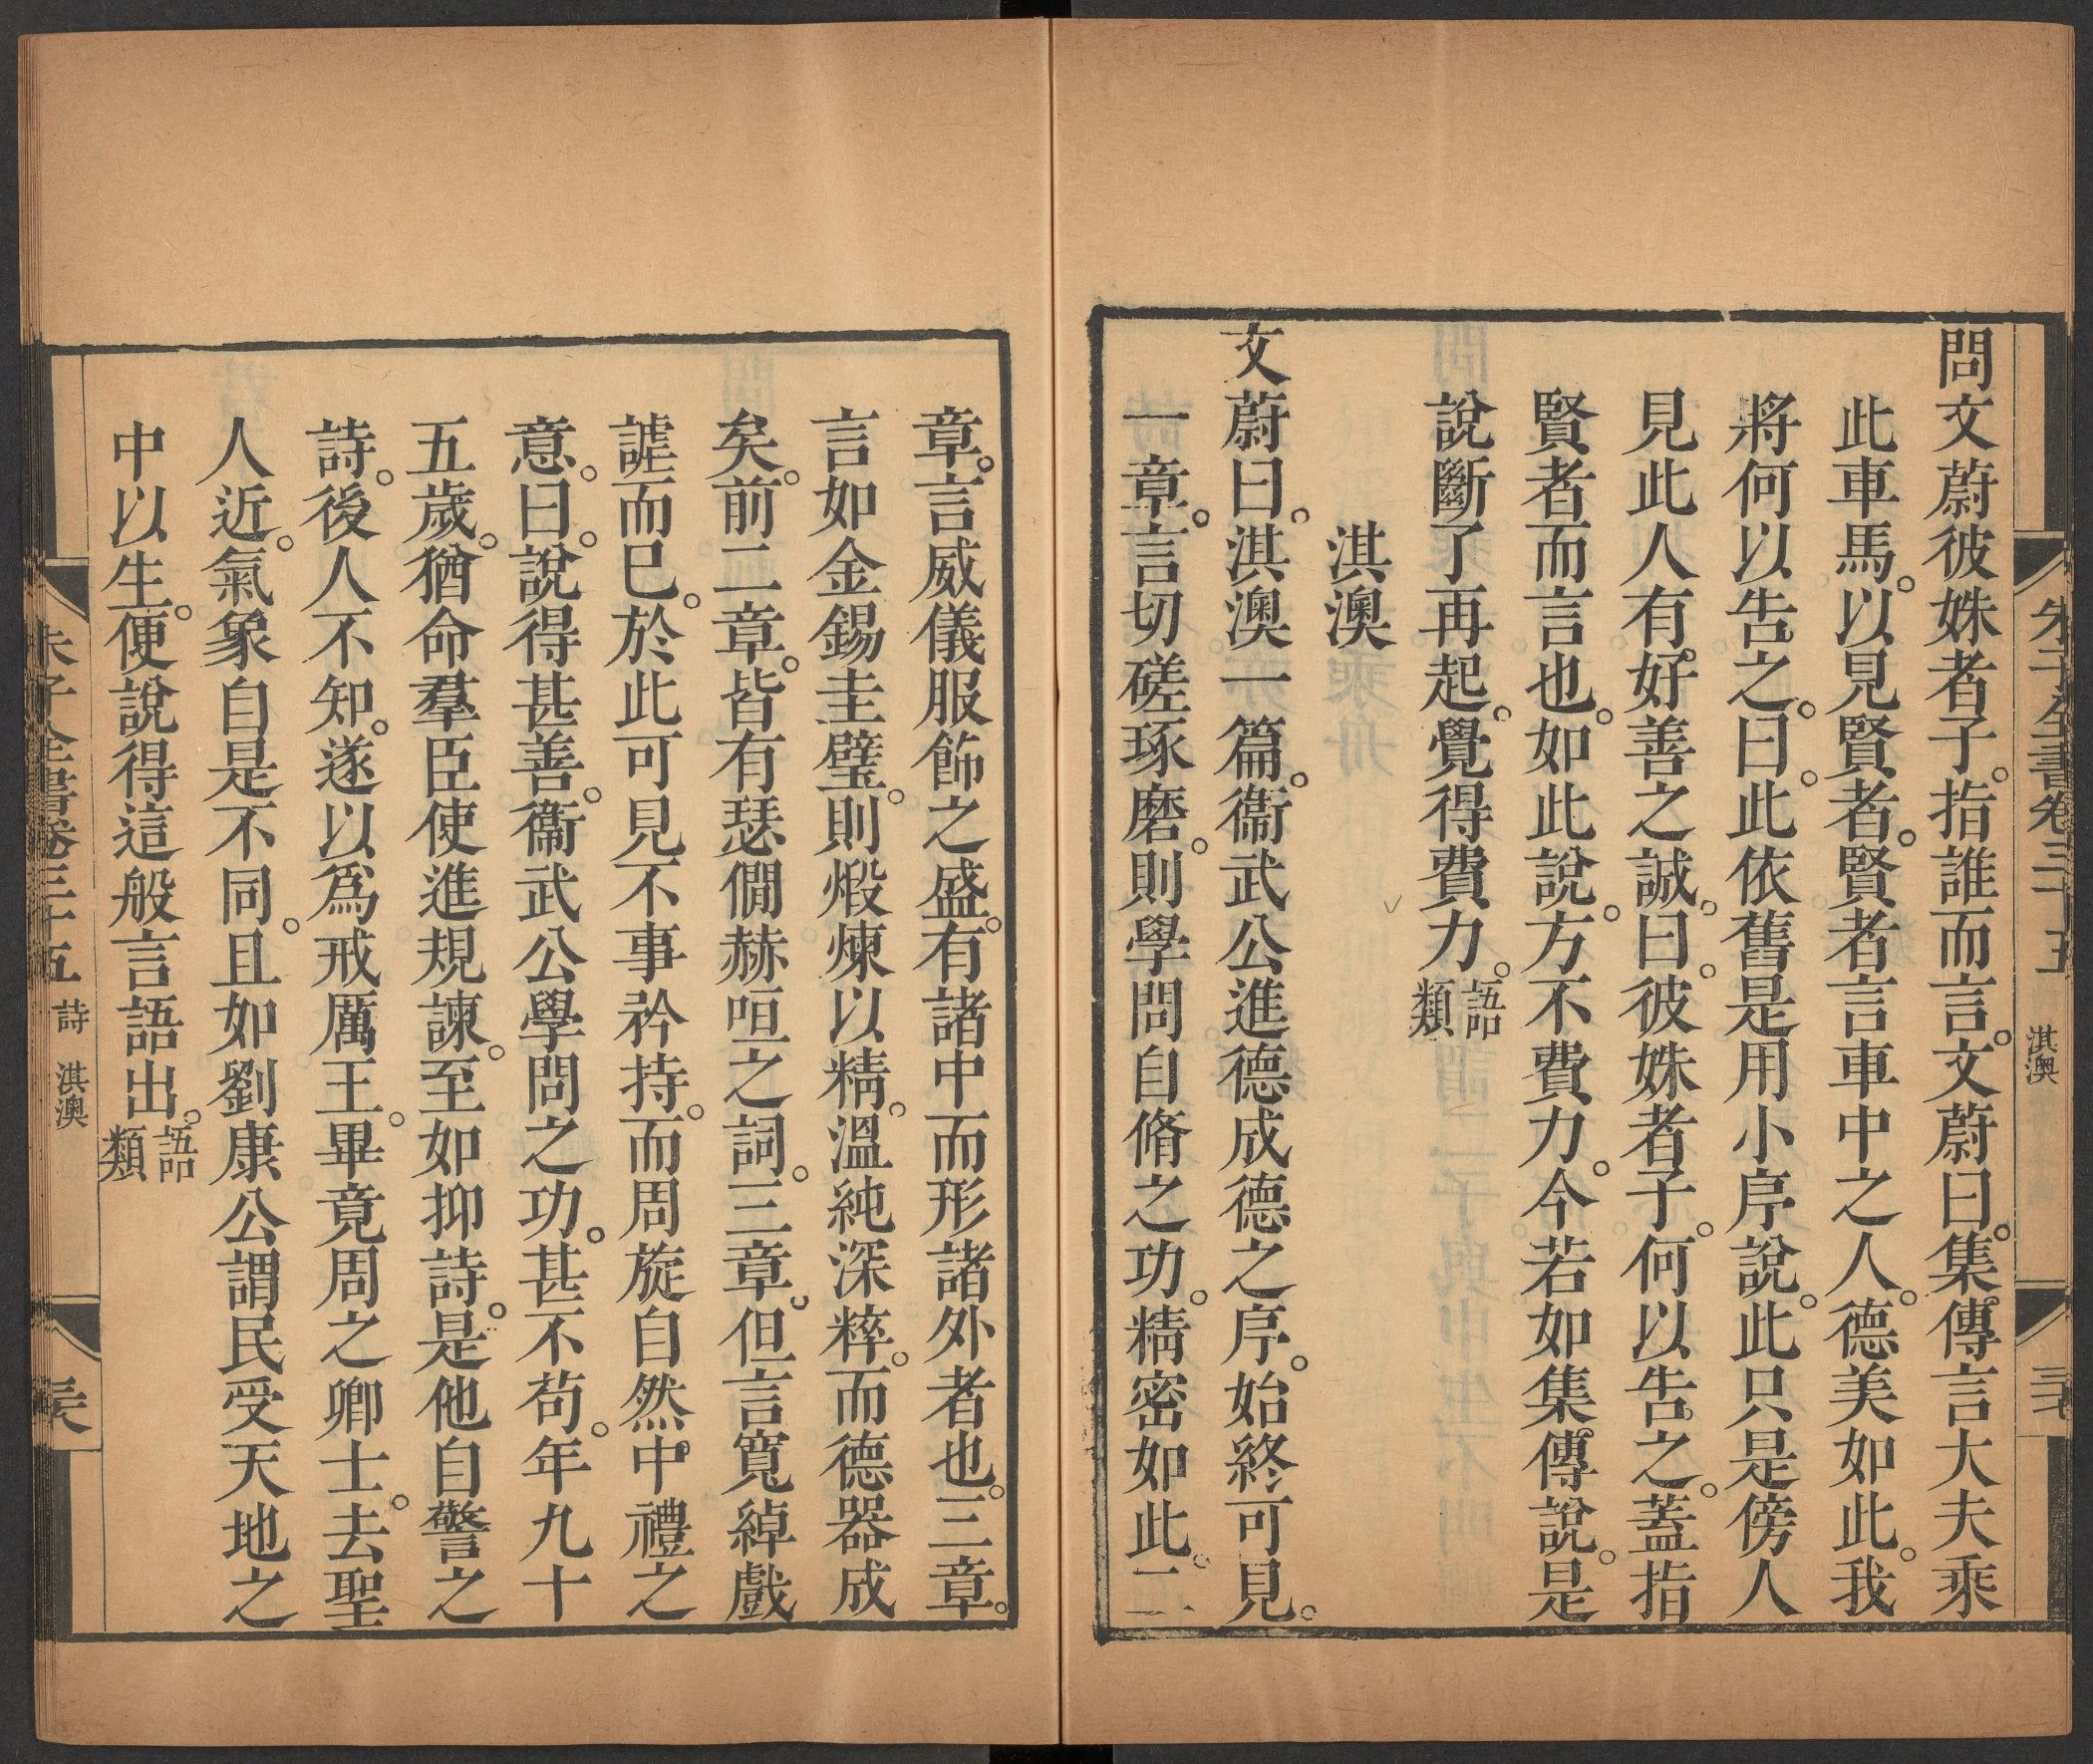 問文蔚彼姝者子。指誰而言。文蔚曰。集傳言大夫乘
此車馬。以見賢者。賢者言車中之人。德美如此。我
將何以告之。曰。此依舊是用小序說。此只是傍人
見此人有好善之誠。曰。彼姝者子。何以告之。蓋指
賢者而言也。如此說。方不費力。今若如集傳說。是
說斷了再起。覺得費力。語類
淇澳
文蔚曰。淇澳一篇。衞武公進德成德之序。始終可見。
一章。言切磋琢磨。則學問自脩之功。精密如此。二
章。言威儀服飾之盛。有諸中而形諸外者也。三章。
言如金錫圭璧。則煅煉以精。溫純深粹。而德器成
矣。前二章。皆有瑟僩赫咺之詞。三章。但言寬綽戲
謔而已。於此可見不事矜持。而周旋自然中禮之
意。曰。說得甚善。衞武公學問之功。甚不苟。年九十
五歲。猶命羣臣使進規諫。至如抑詩。是他自警之
詩。後人不知。遂以爲戒厲王。畢竟周之卿士。去聖
人近。氣象自是不同。且如劉康公謂民受天地之
中以生。便說得這般言語出。語類
朱子全書卷三十五
淇澳
朱子全書卷三十五 詩 淇澳